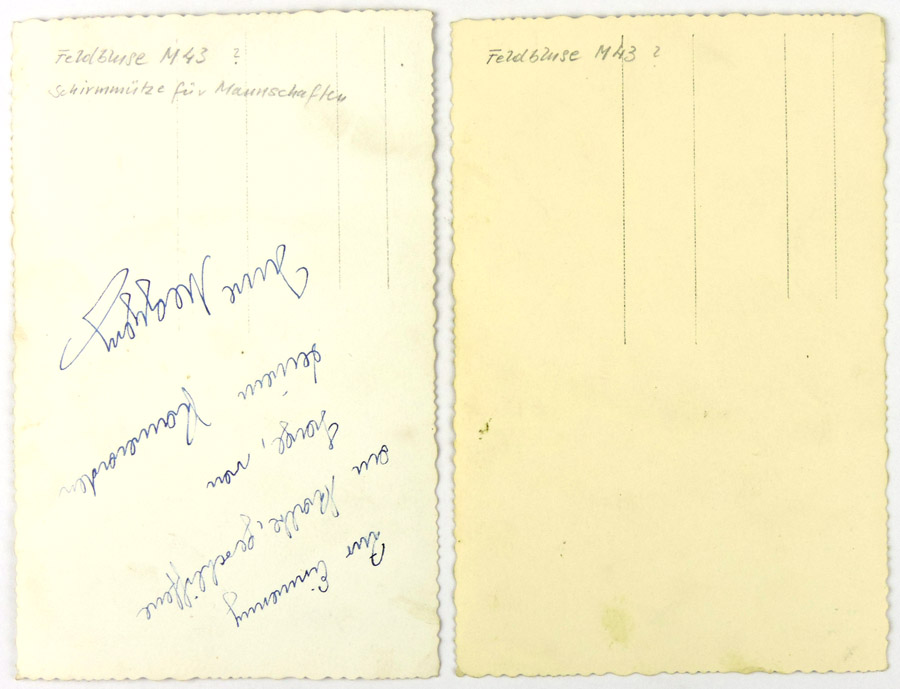 Feldbluse M43 ?
Schirmmütze für Mannschaften
Zur Erinnerung
an geschliffene
Tage, von
deinem Kameraden
Feldbluse M43 ?